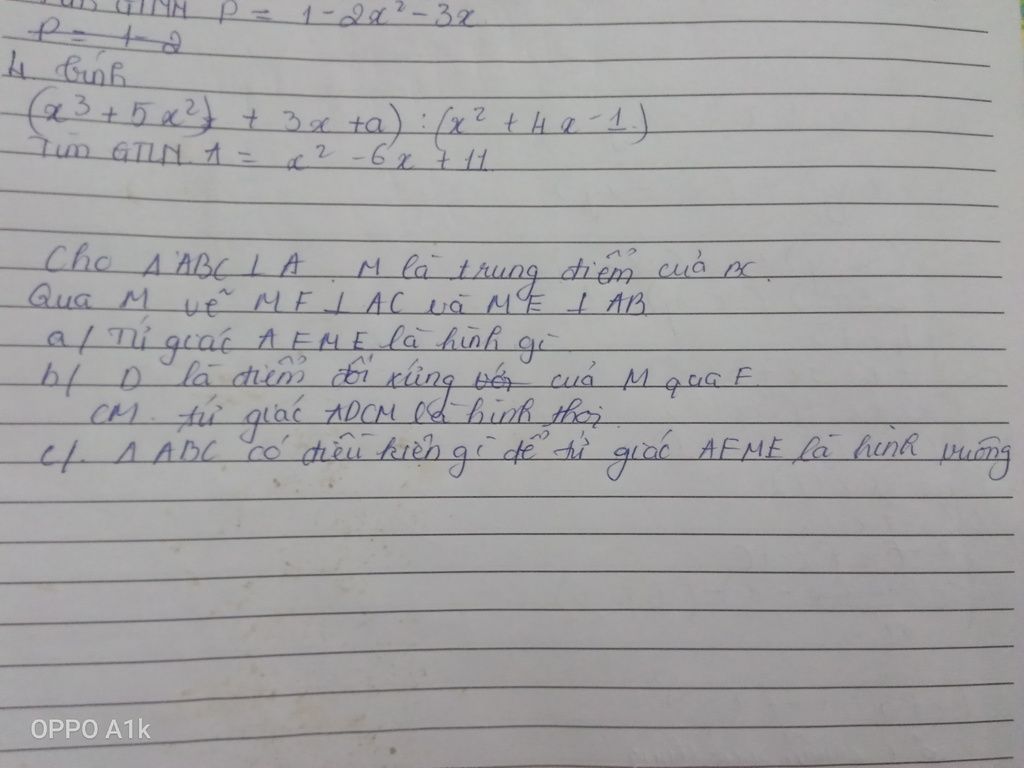 GTNN P = 1 - 2x² - 3x
P = 1 - 2
4 tính
(x³ + 5x² + 3x + a) : (x² + 4x - 1)
Tìm GTLN A = x² - 6x + 11
Cho Δ ABC ⊥ A M là trung điểm của BC.
Qua M vẽ MF ⊥ AC và ME ⊥ AB
a/ Tứ giác AFME là hình gì
b/ D là điểm đối xứng với của M qua F
CM. tứ giác ADCM là hình thoi
c/. Δ ABC có điều kiện gì để tứ giác AFME là hình vuông
OPPO A1k